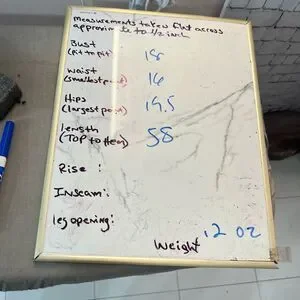 measurements taken flat across
approximate to 1/2 inch
Bust
(pit to pit) 18
Waist
(smallest point) 16
Hips
(largest point) 19.5
length
(TOP to Hem) 58
Rise :
Inseam :
leg opening :
Weight .12 oz